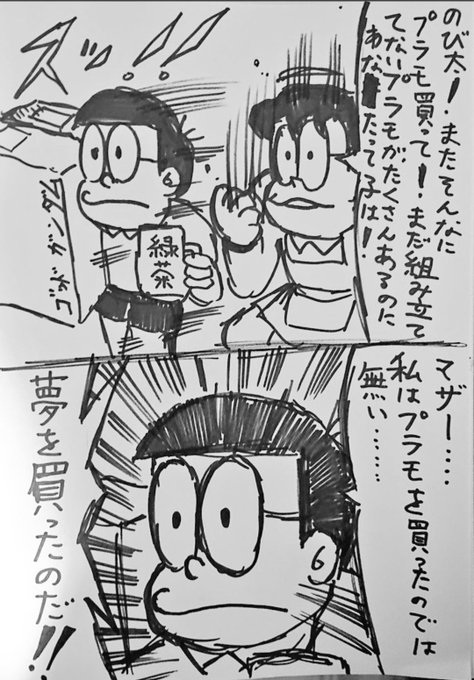 のび太！またそんなに
プラモ買って！まだ組み立て
てないプラモがたくさんあるのに
あなたって子は！
ズッ！！
ゴッドガンダム
緑茶
マザー‥‥
私はプラモを買ったのでは
無い‥‥‥
夢を買ったのだ！！